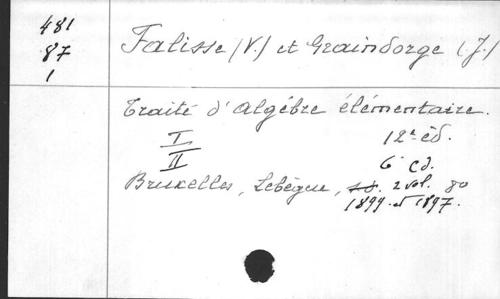 481
87
1
Falisse (V.) et Graindorge (J.)
Traité d'algébre élémentaire.
I 12e éd.
II 6e éd.
Bruxelles, Lebègue, s.d. 2 vol. 8o
1899 et 1897.